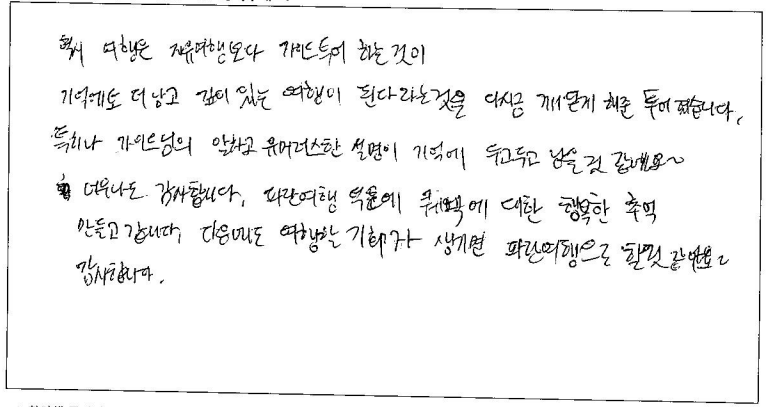 역시 여행은 자유여행보다 가이드투어 하는것이
기억에도 더 남고 깊이 있는 여행이 된다라는것을 다시금 깨닫게 해준 투어였습니다.
특히나 가이드님의 유머러스한 설명이 기억에 두고두고 남을것 같네요~
너무나도 감사합니다. 파란여행 덕분에 퀘벡에 대한 행복한 추억
만들고 갑니다. 다음에도 여행할 기회가 생기면 파란여행으로 할것 같네요~
감사합니다.